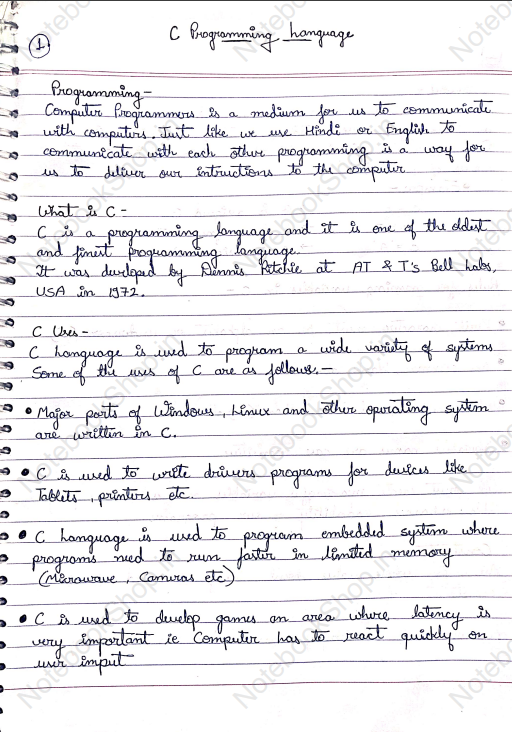 1
C Programming Language
Programming -
Computer Programmers is a medium for us to communicate
with computers. Just like we use Hindi or English to
communicate with each other programming is a way for
us to deliver our intructions to the computer
What is C -
C is a programming language and it is one of the oldest
and finest programming language.
It was developed by Dennis Ritchie at AT & T's Bell Labs,
USA in 1972.
C Uses -
C Language is used to program a wide variety of systems
Some of the uses of C are as follows. -
• Major parts of Windows, Linux and other operating system
are written in C.
• C is used to write drivers programs for devices like
Tablets, printers etc.
• C Language is used to program embedded system where
programs need to run faster in limited memory
(Microwave, Cameras etc)
• C is used to develop games an area where latency is
very important ie Computer has to react quickly on
user input
NotebookShop.in